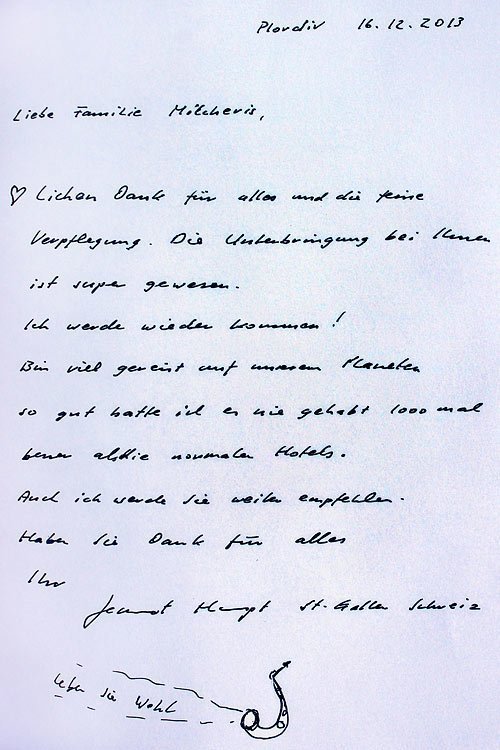 Plovdiv 16.12.2013
Liebe Familie Milcheris,
♡ Lichen Dank für alles und die feine
Verpflegung. Die Unterbringung bei Ihnen
ist super gewesen.
Ich werde wieder kommen!
Bin viel gereist auf unserem Planeten
so gut hatte ich es nie gehabt 1000 mal
besser als die normalen Hotels.
Auch ich werde Sie weiter empfehlen.
Haben Sie Dank für alles
Ihr
St. Gallen Schweiz
Leben Sie Wohl